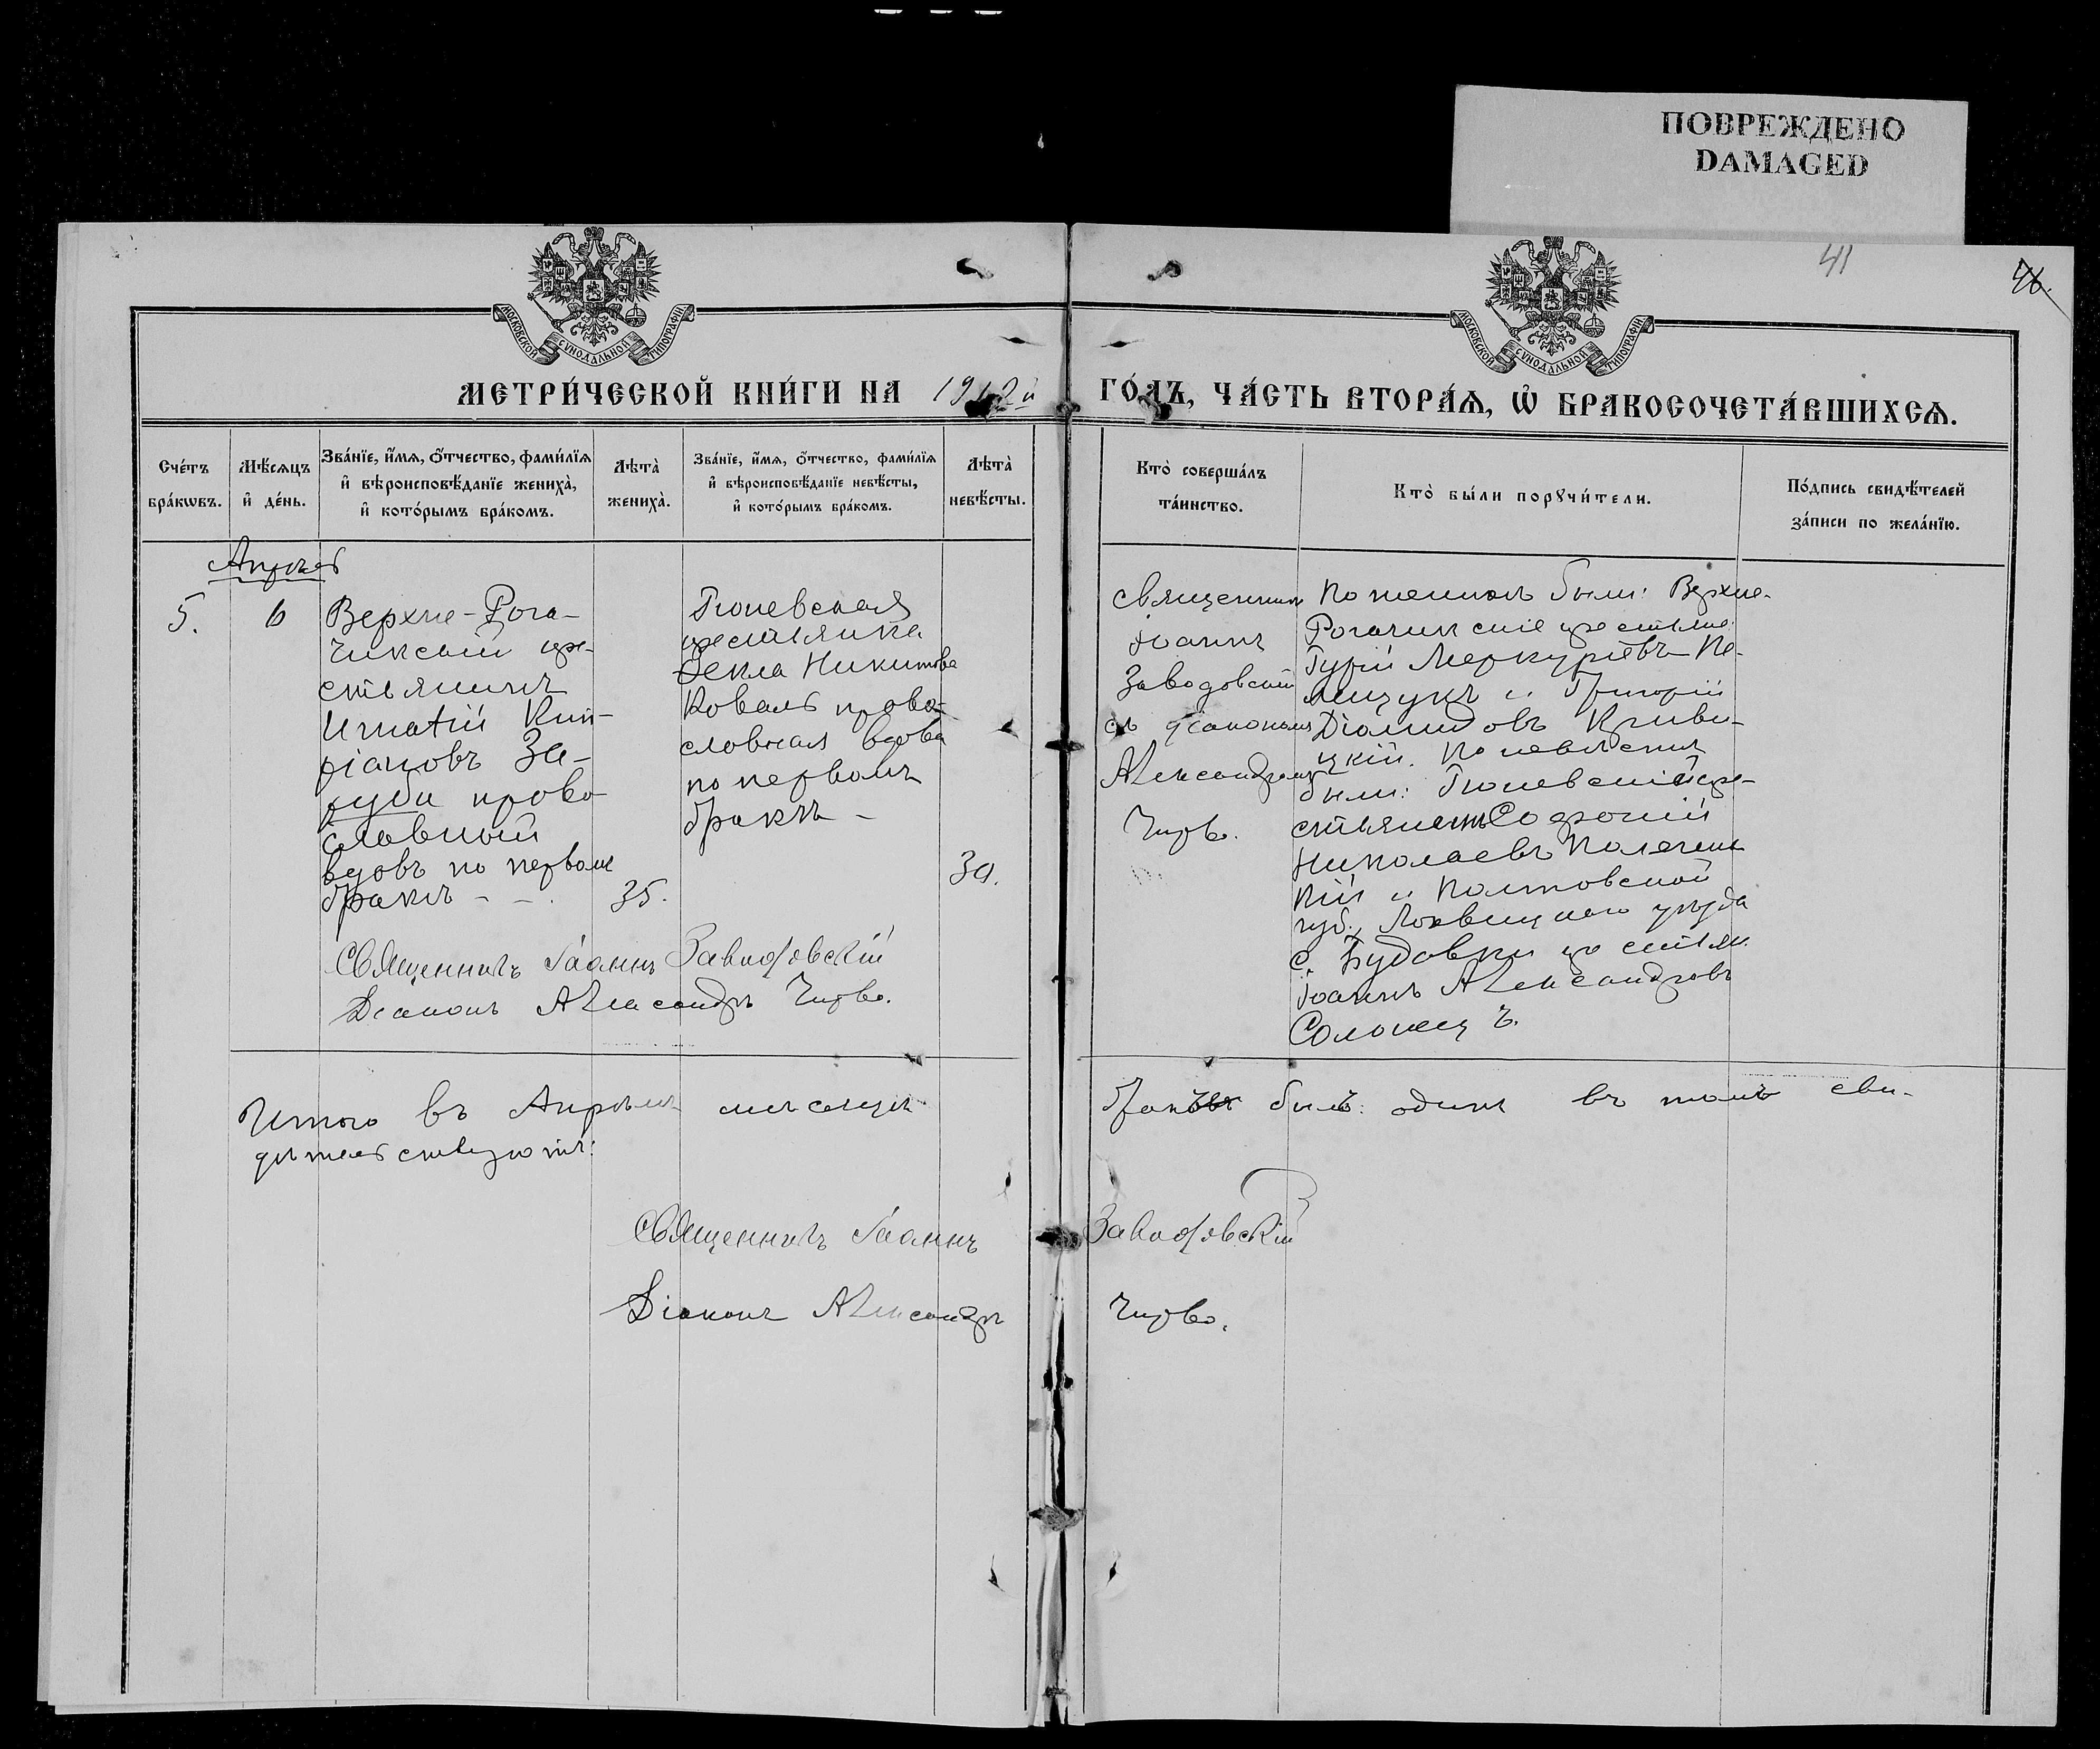 ПОВРЕЖДЕНО
DAMAGED
41
МОСКОВСКОЙ СѴНОДАЛЬНОЙ ТИПОГРАФІИ
МОСКОВСКОЙ СѴНОДАЛЬНОЙ ТИПОГРАФІИ
МЕТРИ́ЧЕСКОЙ КНИ́ГИ НА 1912 й ГО́ДЪ, ЧА́СТЬ ВТОРА́Ѧ, Ѽ БРАКОСОЧЕТА́ВШИХСѦ.
Сче́тъ бра́кѡвъ.
Мѣ́сѧцъ и҆ де́нь.
Зва́нїе, и҆́мѧ, ѻ҆́тчество, фами́лїѧ
и҆ вѣроисповѣ́данїе жениха̀,
и҆ кото́рымъ бра́комъ.
Лѣта̀ жениха̀.
Зва́нїе, и҆́мѧ, ѻ҆́тчество, фами́лїѧ
и҆ вѣроисповѣ́данїе невѣ́сты,
и҆ кото́рымъ бра́комъ.
Лѣта̀ невѣ́сты.
Кто̀ соверша́лъ
та́инство.
Кто̀ бы́ли порꙋчи́тели.
По́дпись свидѣ́телей
за́писи по жела́нїю.
Апрѣль
5.
6
Верхне-Рога-
чикскій кре-
стьянинъ
Игнатій Кип-
ріановъ За-
руба право
славный
вдовъ по первомъ
бракѣ - - .
35.
крестьянка
Ѳекла Никитова
Коваль право-
славная вдова
по первомъ
бракѣ -
30.
Священникъ
Іоаннъ
Заводовскій
съ діакономъ
Александромъ
Чирво.
По женихѣ были: Верхне-
Рогачикскіе крестьяне
Гурій Меркуріевъ Пе-
и Григорій
Діомидовъ Криви-
цкій. По невѣстѣ
были: кре-
стьянинъ Софроній
Николаевъ
кій и Полтовской
губ., Лохвицкаго уѣзда
с. Будовки крестьян.
Іоаннъ Александровъ
Солонецъ.
Священникъ Іоаннъ Заводовскій
Діаконъ Александръ Чирво.
Итого въ Апрѣлѣ мѣсяцѣ бракъ былъ: одинъ въ томъ сви-
дѣтельствуютъ:
Священникъ Іоаннъ Заводовскій
Діаконъ Александръ Чирво.